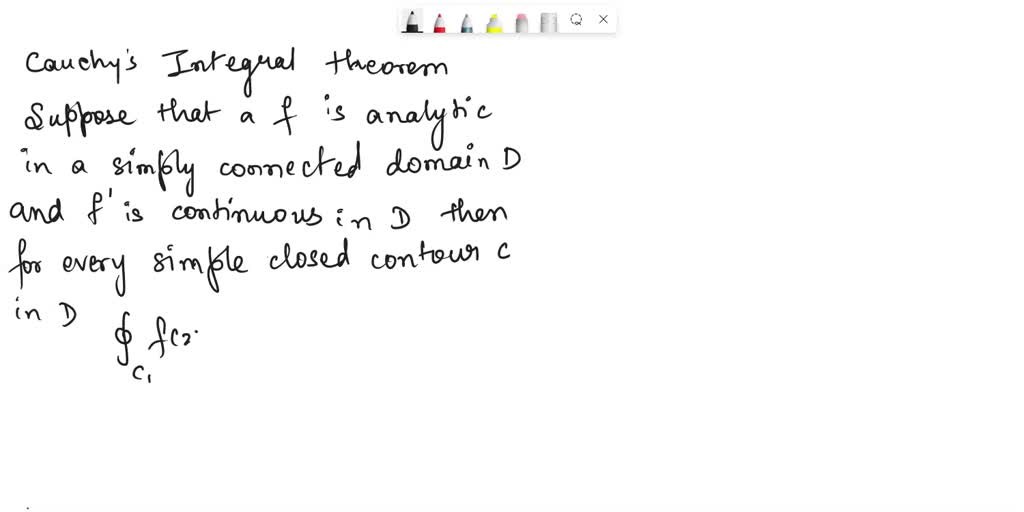 Cauchy's Integral theorem
Suppose that a f is analytic
in a simply connected domain D
and f' is continuous in D then
for every simple closed contour c
in D
∮ f(z
C1